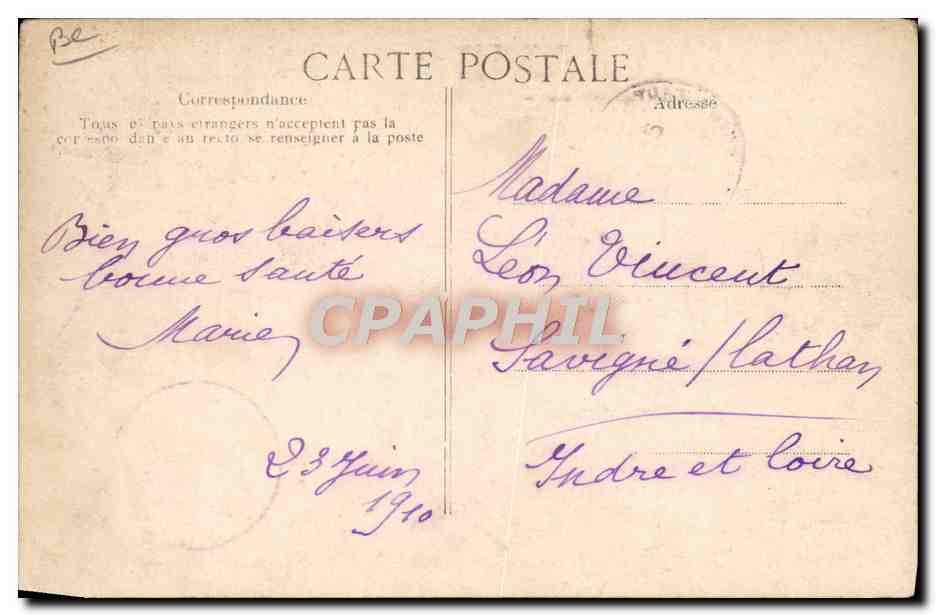 Be
CARTE POSTALE
Correspondance
Tous les pays étrangers n'acceptent pas la
correspondance au recto se renseigner à la poste
Bien gros baisers
bonne santé
Marie
23 Juin
1910
CPAPHIL
Adresse
Madame
Léon Vincent
Savigné/lathan
Indre et Loire